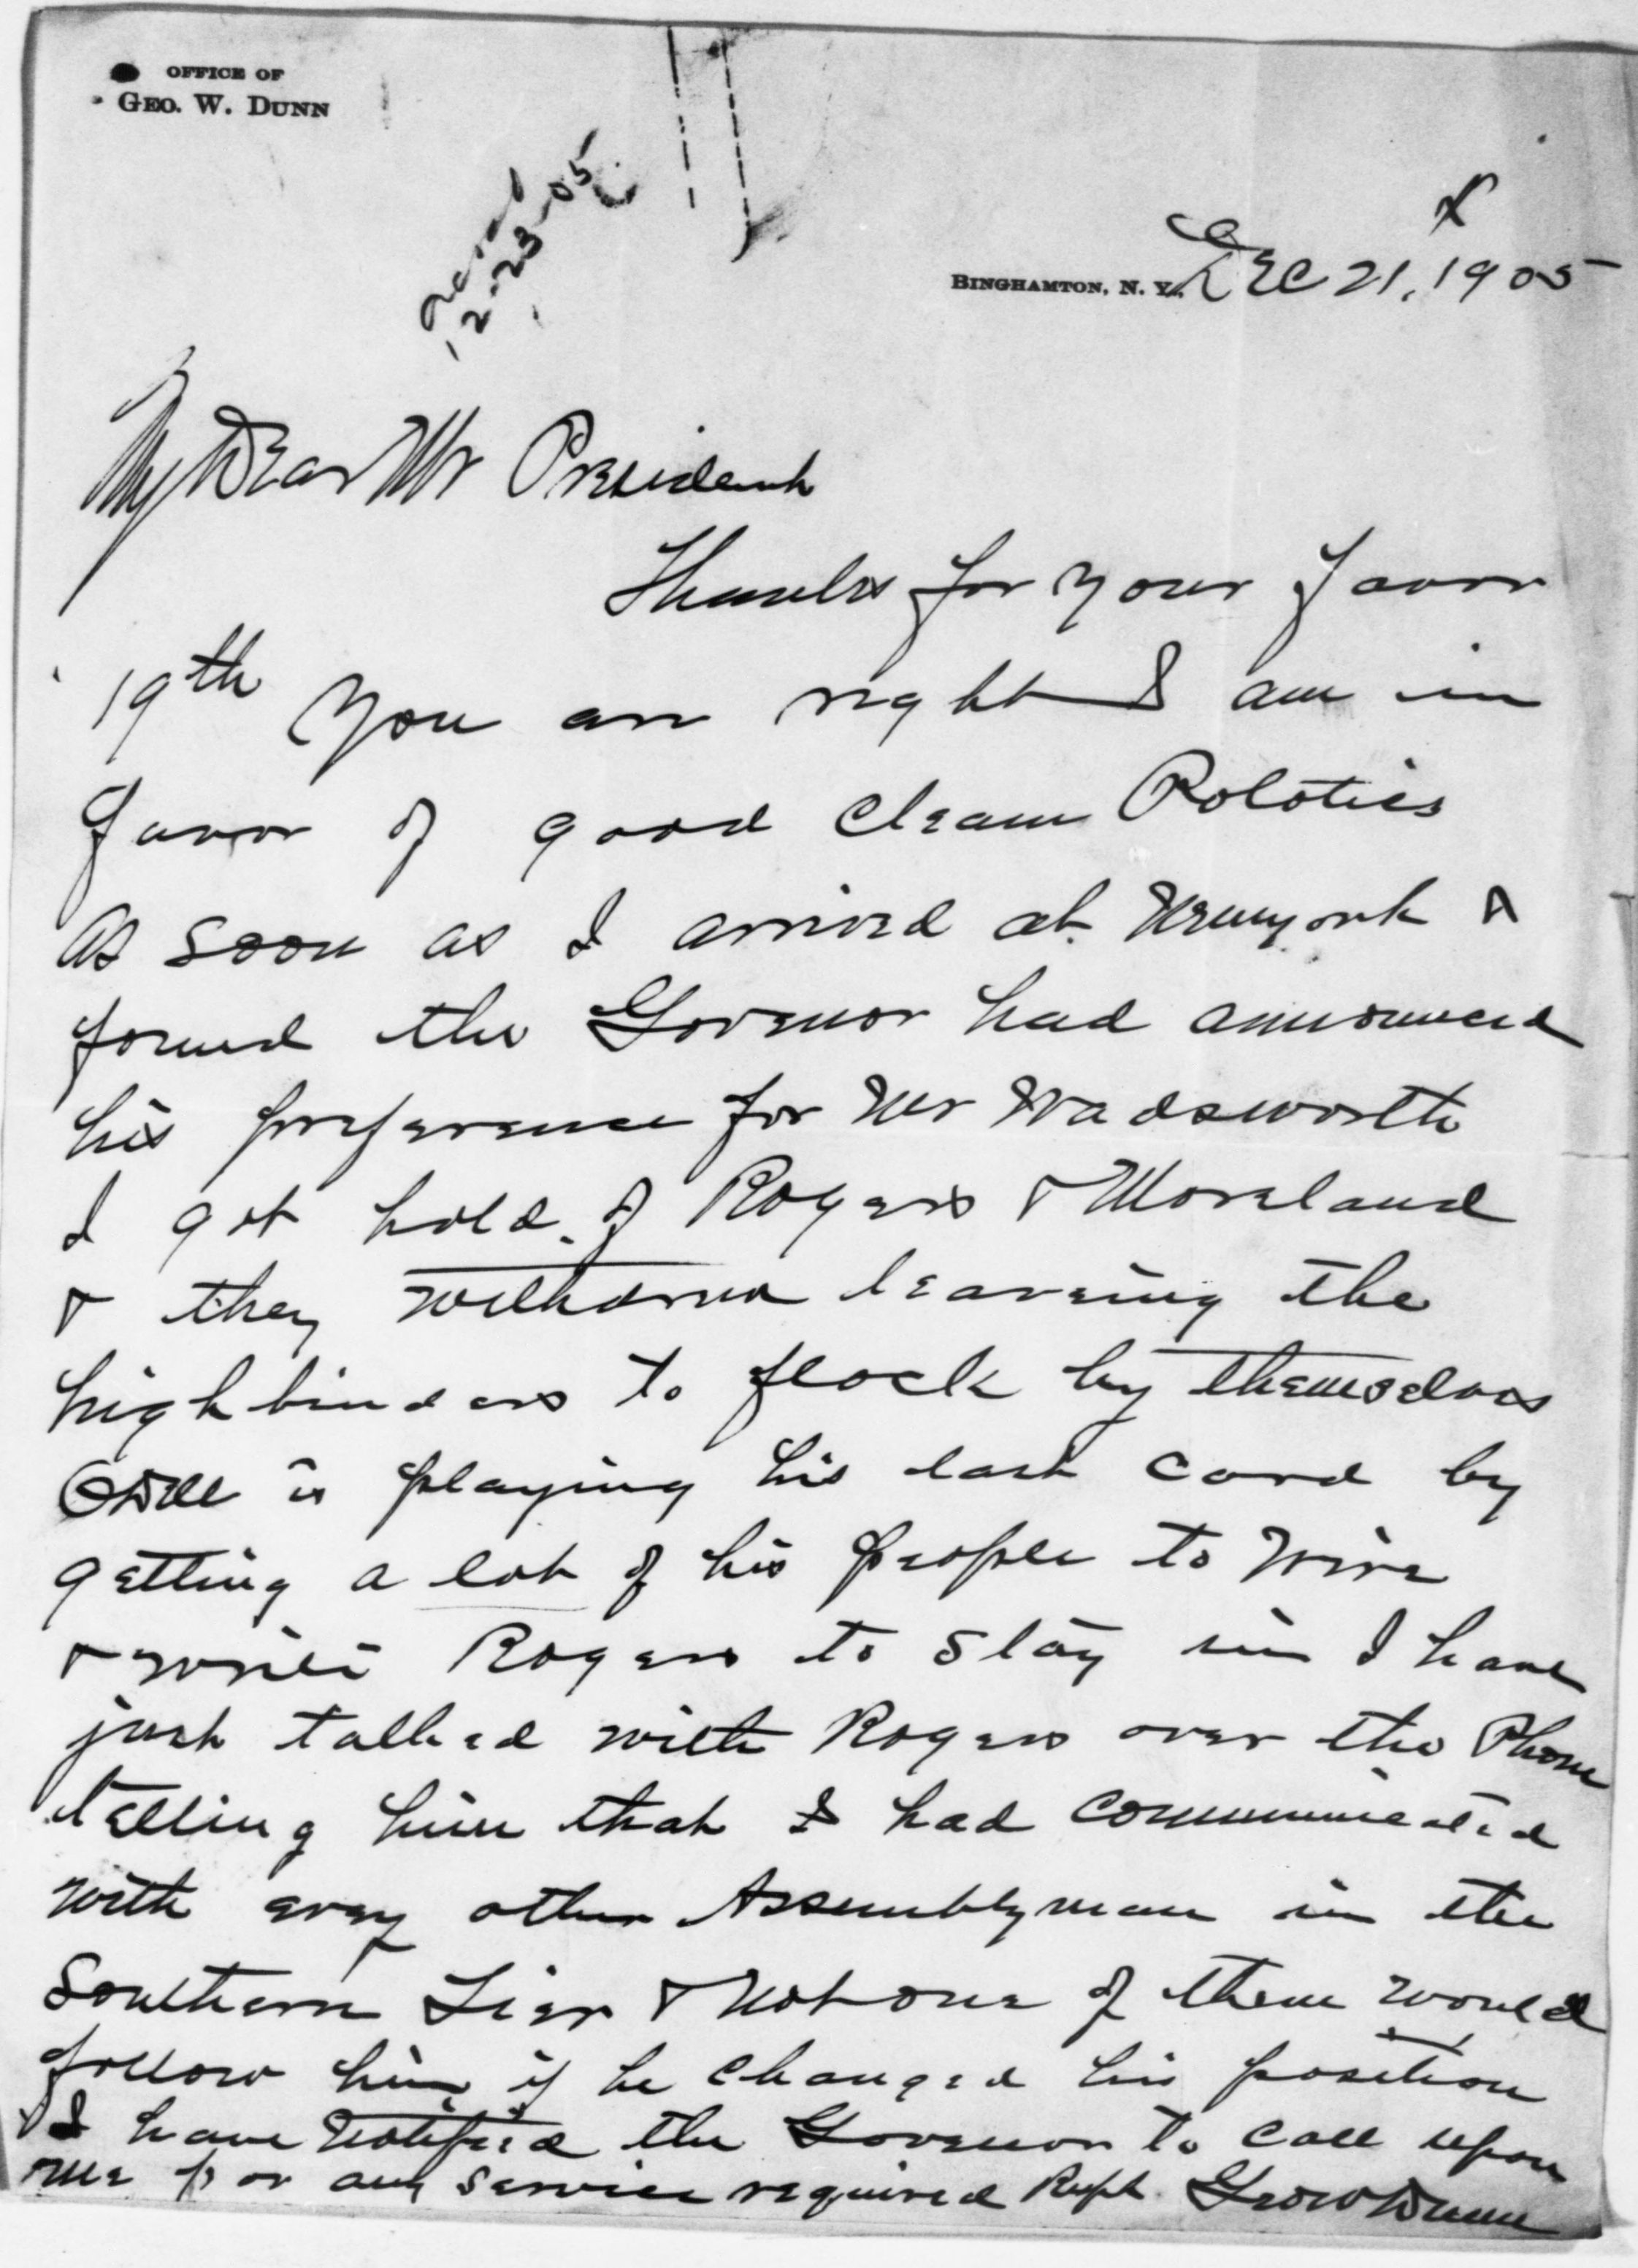 OFFICE OF
GEO. W. DUNN
12-23-05
BINGHAMTON, N. Y. Dec 21, 1905
My Dear Mr President
Thanks for your favor
19th You are right I am in
favor of good clean Polotics
As soon as I arrived at Newyork &
found the Govenor had announced
his preference for Mr Wadsworth
I got hold of Rogers & Moreland
& they withdrew leaveing the
highbinders to flock by themselves
Odell is playing his last card by
getting a lot of his people to wire
& write Rogers to stay in I have
just talked with Rogers over the Phone
telling him that I had communicated
with evry other Assemblyman in the
Southern Tier & Not one of them would
follow him if he changed his position
& I have Notified the Govenor to call upon
me for any service required Respt. Geo W Dunn